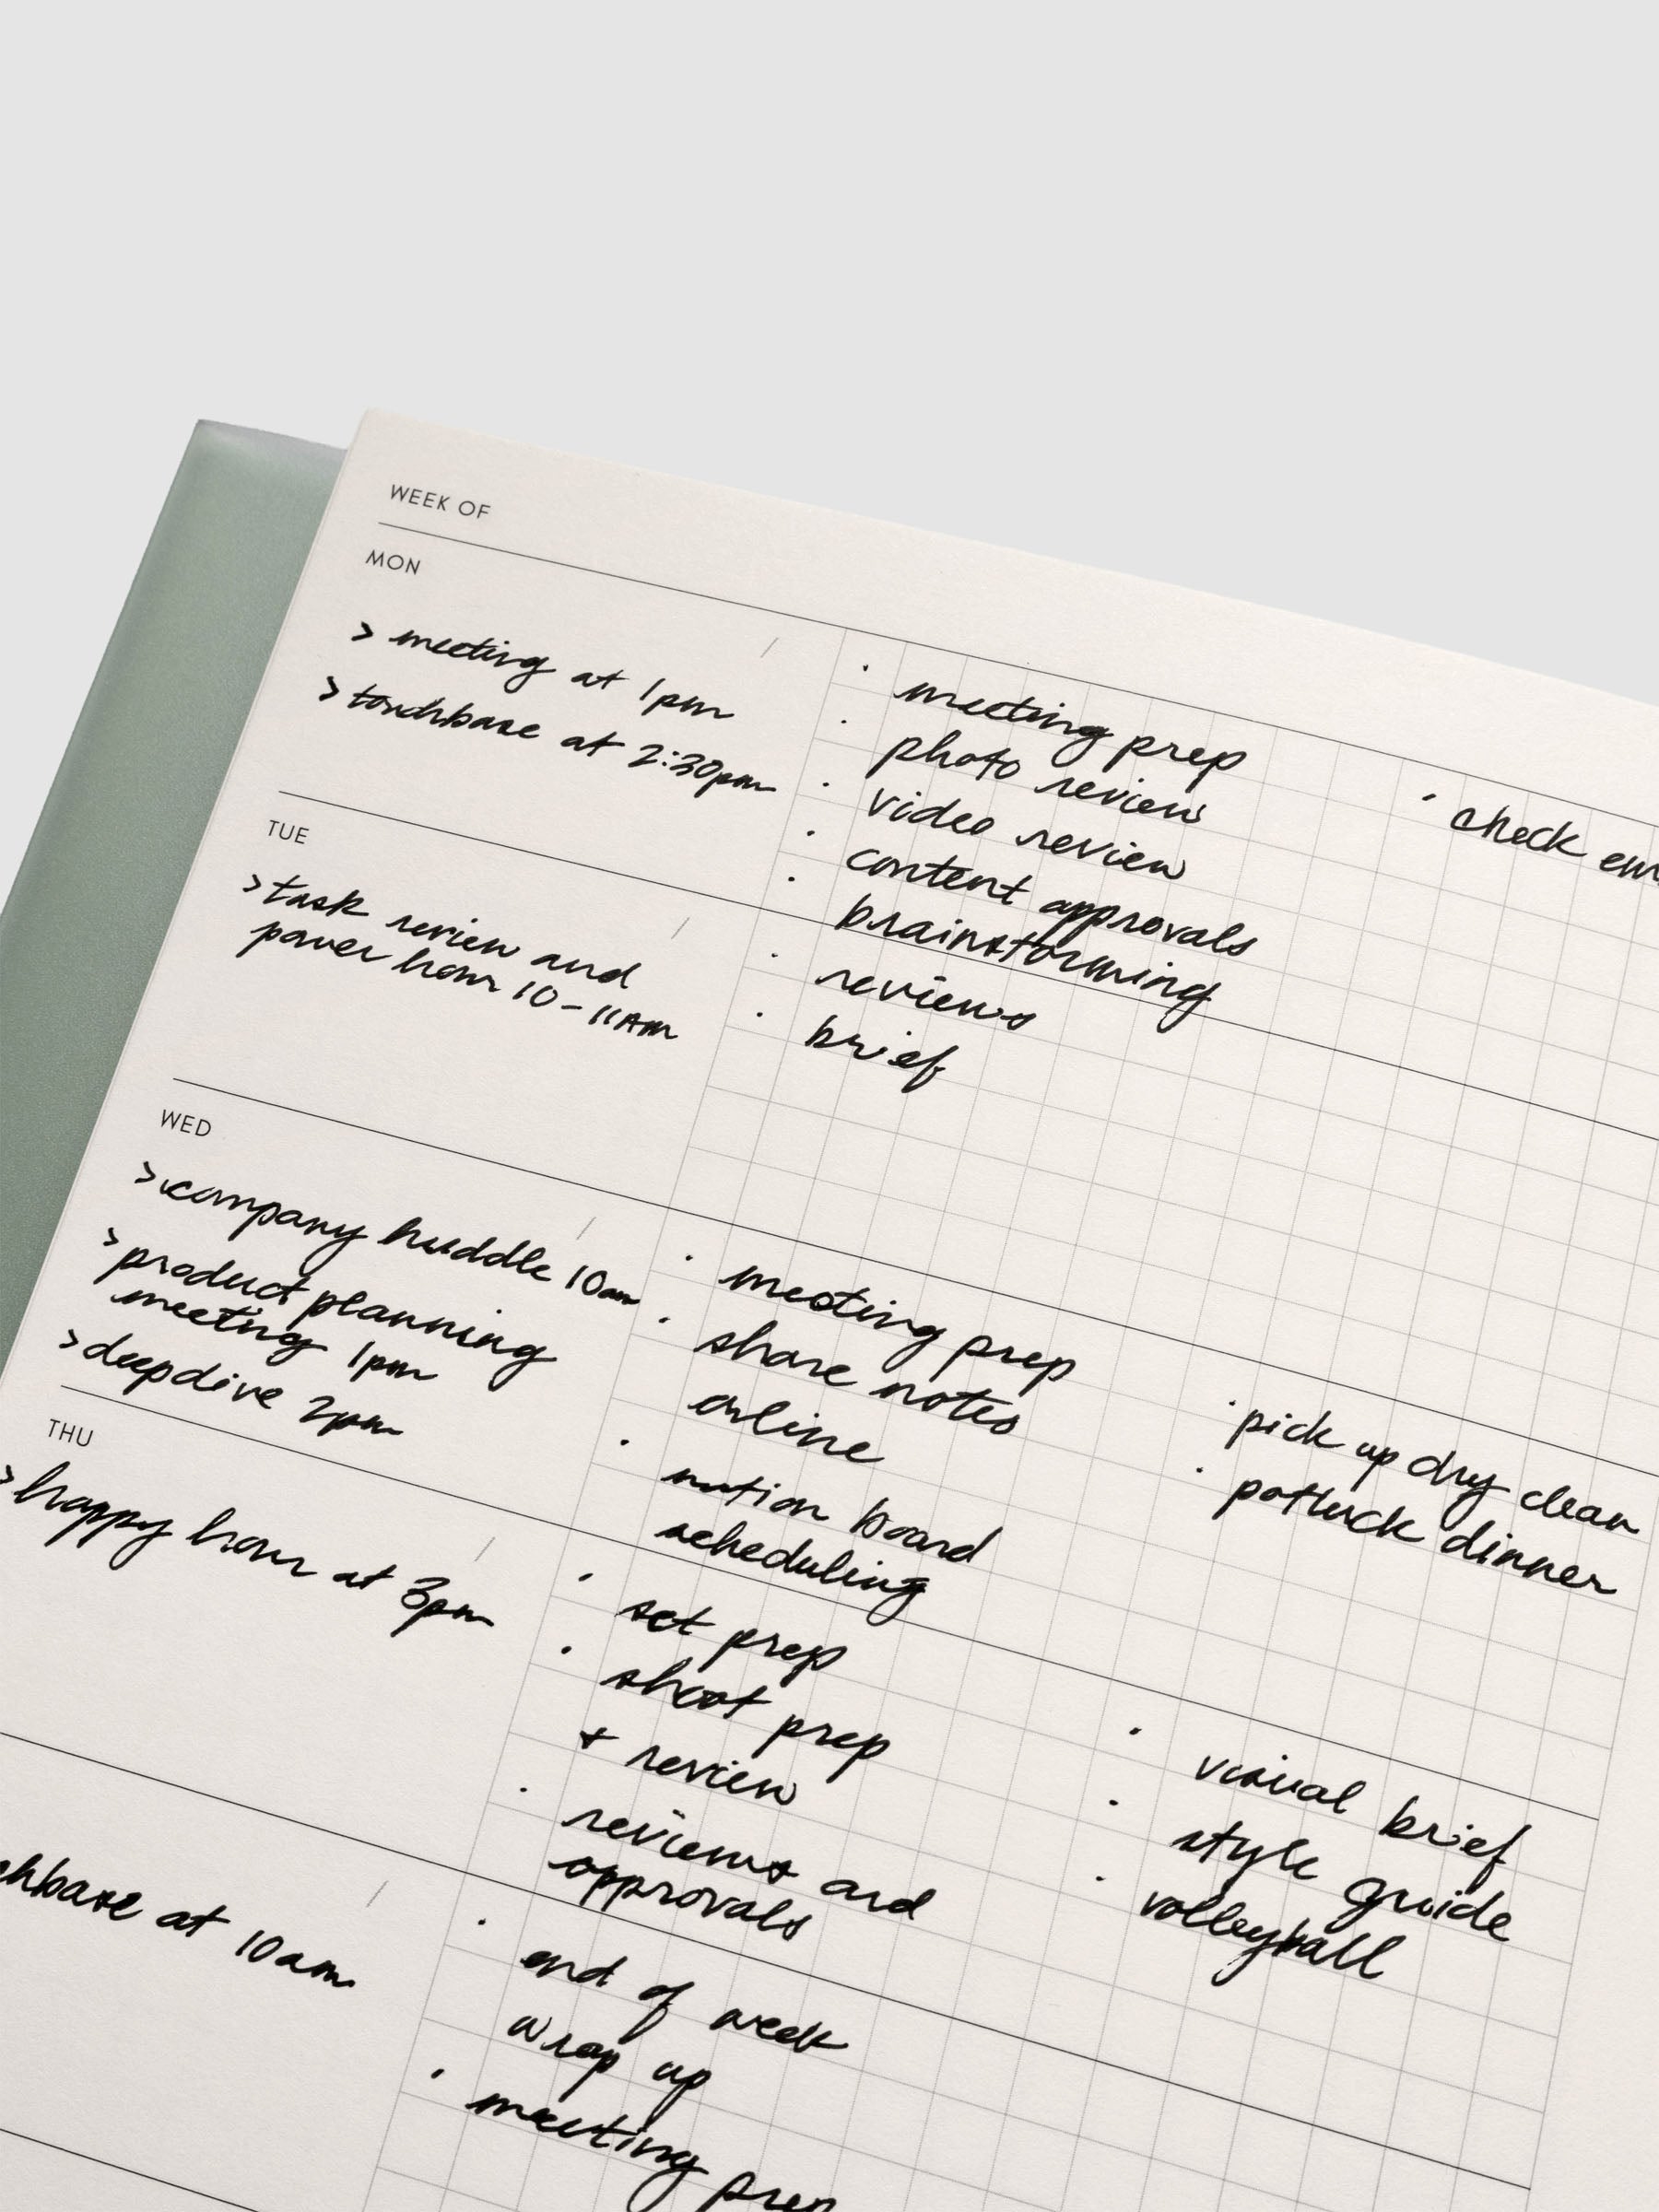 WEEK OF
MON
> meeting at 1pm
> touchbase at 2:30pm
· meeting prep
· photo review
· video review
· content approvals
· brainstorming
· check
TUE
> task review and
power hour 10-11AM
· reviews
· brief
WED
> company huddle 10am
> product planning
meeting 1pm
> deepdive 2pm
· meeting prep
· share notes
online
· notion board
scheduling
· pick up dry clean
· potluck dinner
THU
> happy hour at 3pm
· set prep
· shoot prep
+ review
· reviews and
approvals
· visual brief
· style guide
· volleyball
at 10am
· end of week
wrap up
· meeting prep